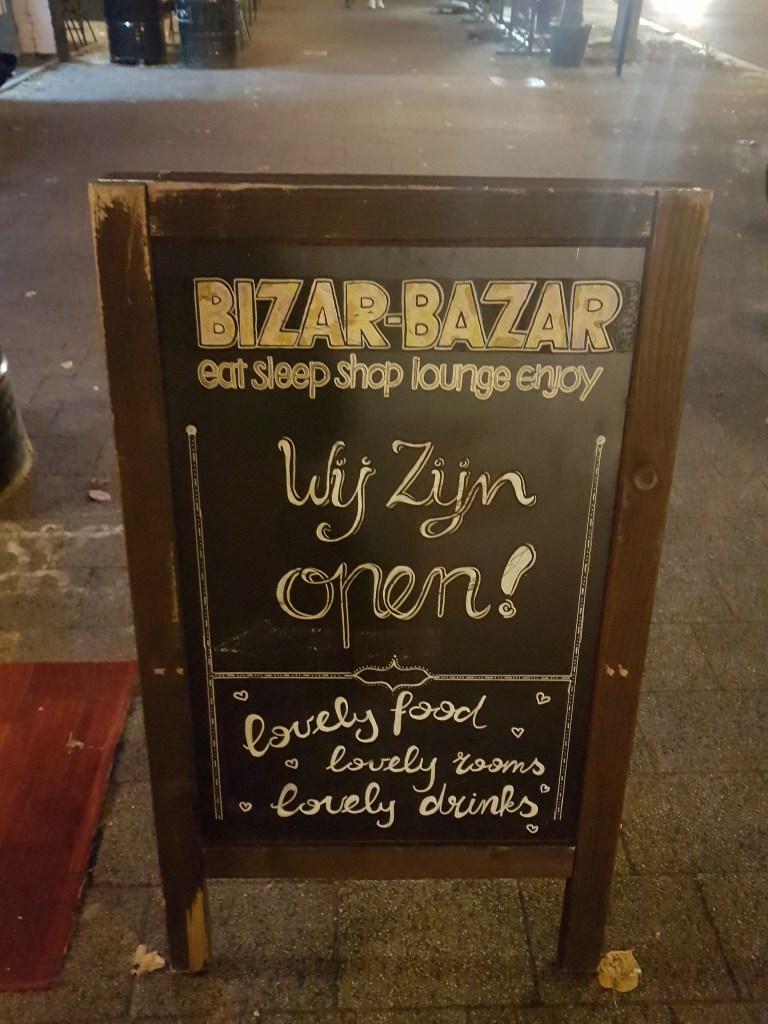 BIZAR-BAZAR
eat sleep shop lounge enjoy
Wij Zijn
open!
lovely food
lovely rooms
lovely drinks